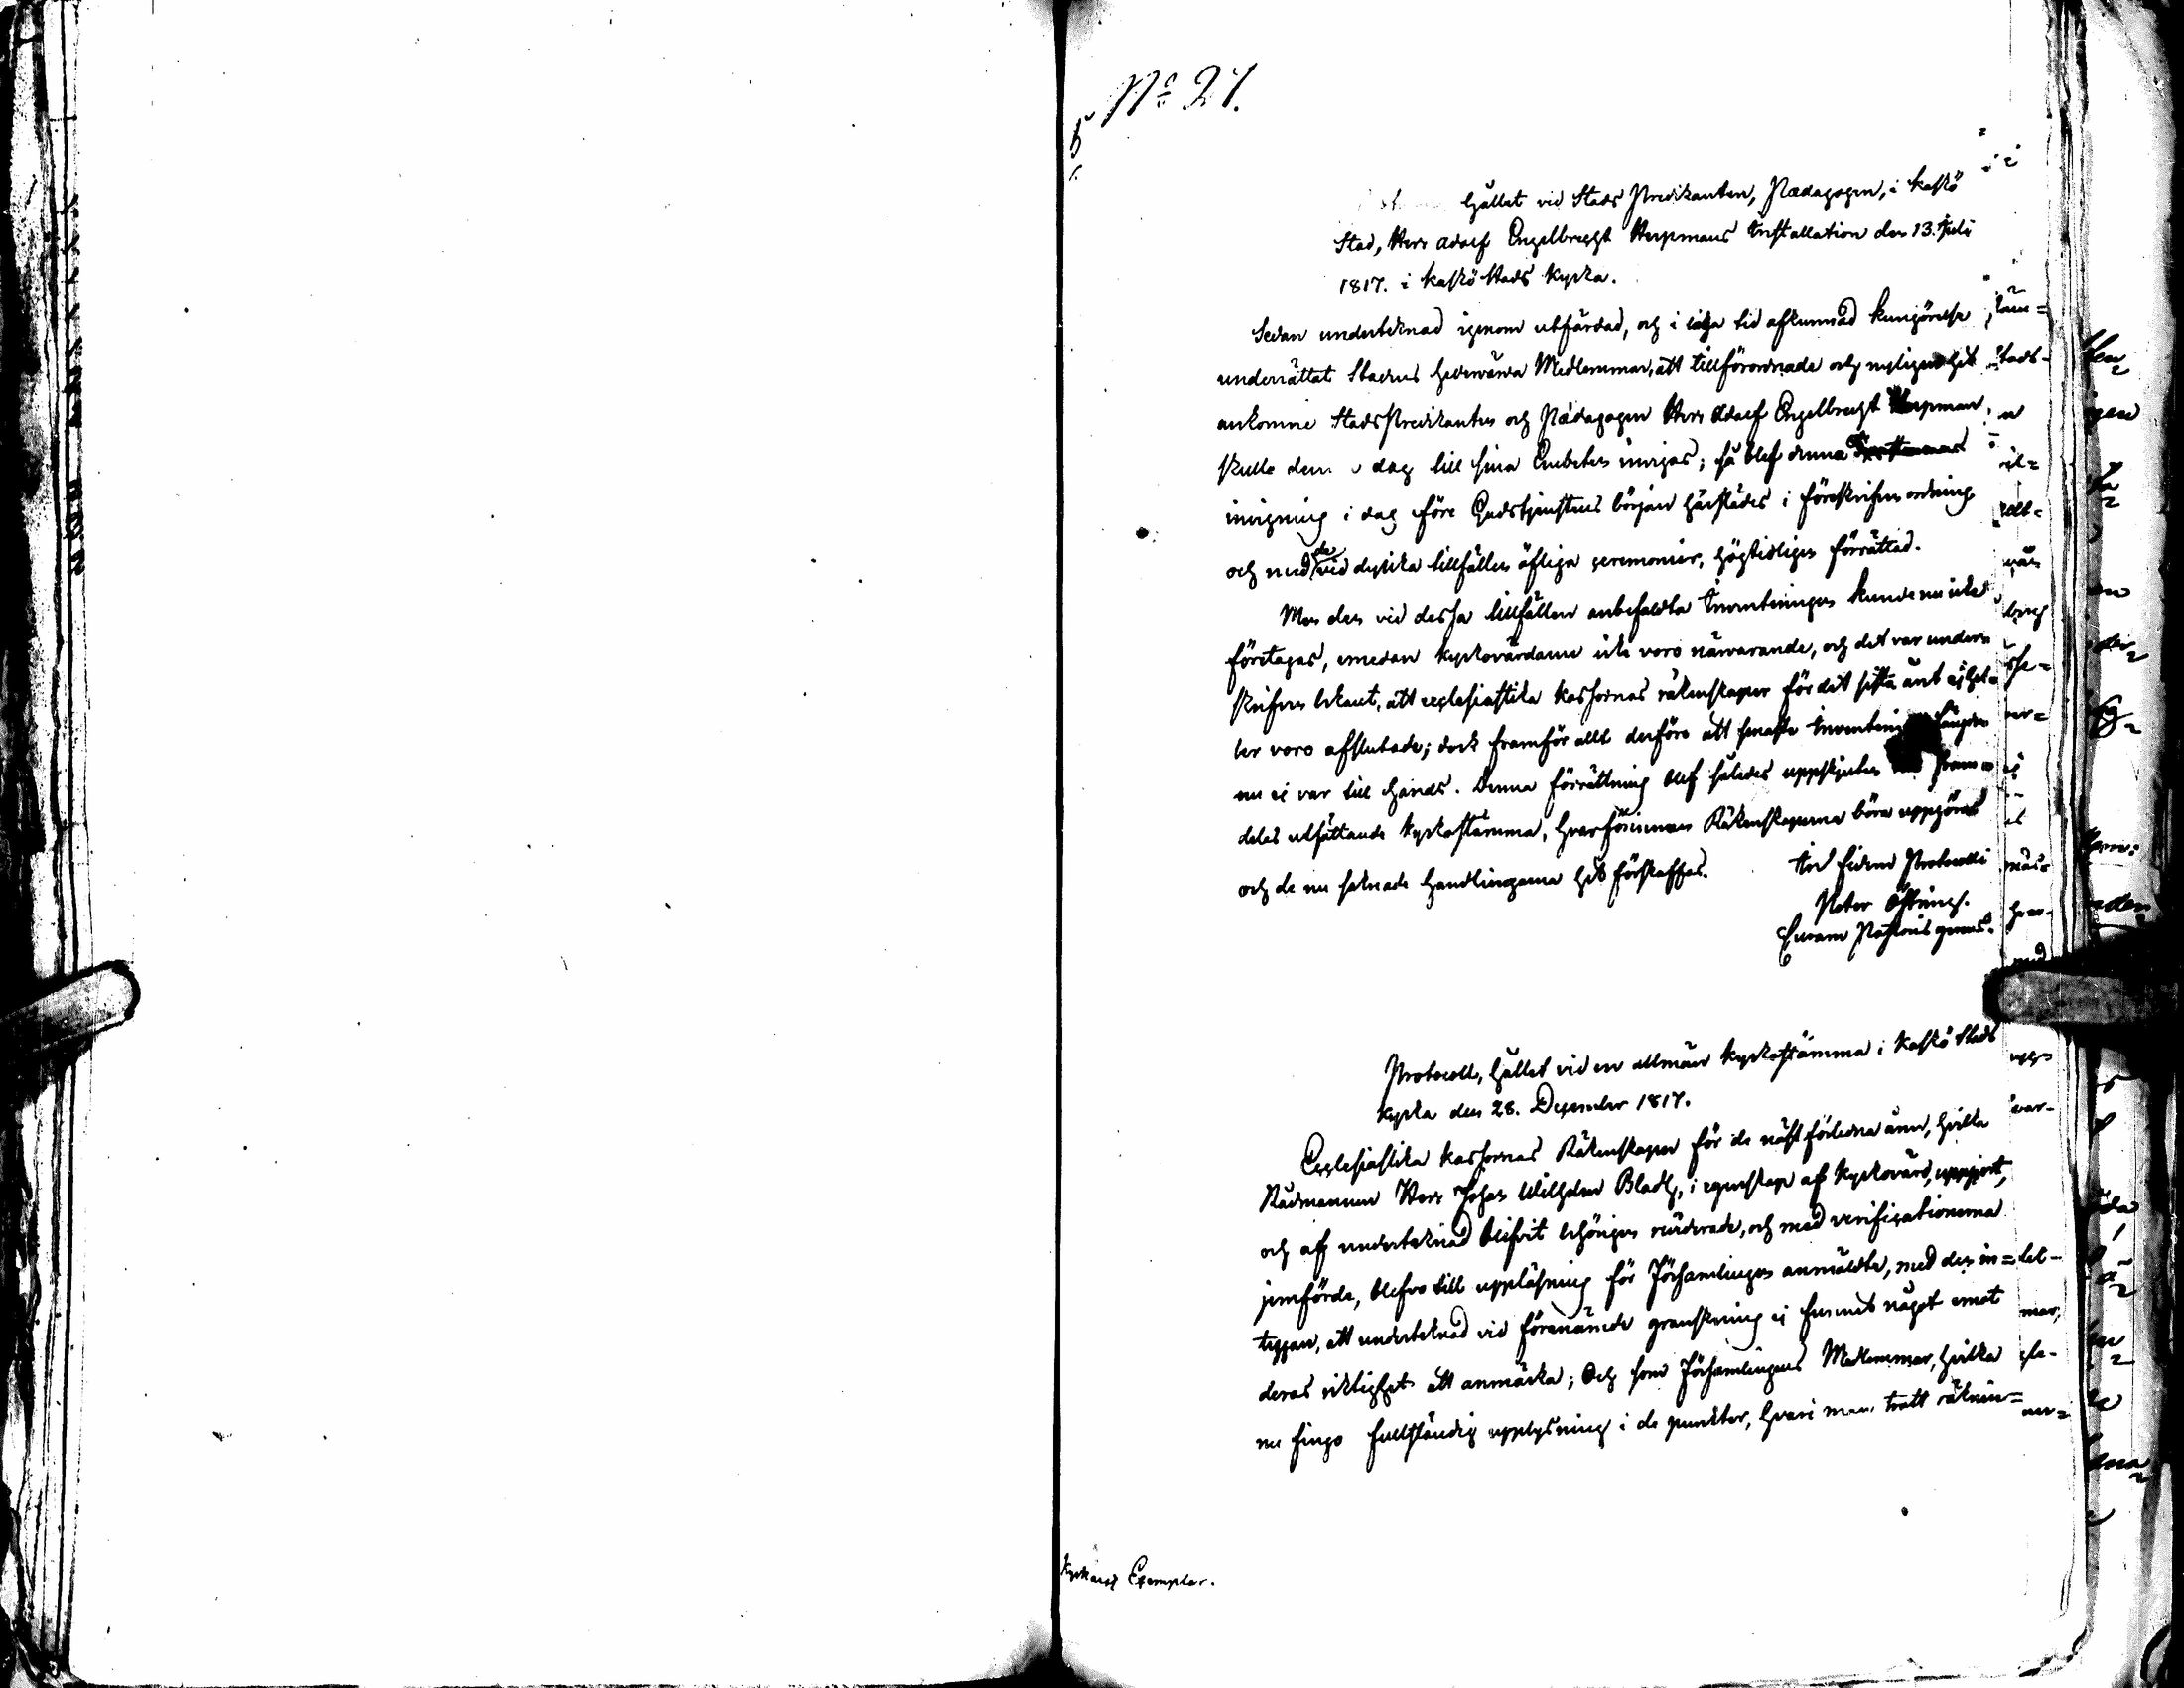 No 27.
5
hållet vid Stads Predikanten, Pædagogen, i Kaskö
Stad, Herr Adolf Engelbrecht Herpmans Installation den 13. Juli
1817. i Kaskö Stads Kyrka.
Sedan undertecknad igenom utfärdad, och i laga tid afkunnad kungörelse
underrättat Stadens hedervärda Medlemmar, att tillförordnade och nyligen hit
ankomne StadsPredikanten och Pædagogen Herr Adolf Engelbrecht Herpman,
skulle denna dag till sina Embeten invigas; så blef denna
invigning i dag före Gudstjenstens början härstädes i föreskrifven ordning
och med de vid dylika tillfällen öfliga ceremonier, högtidligen förrättad.
Men den vid dessa tillfällen anbefaldta Inventeringen kunde nu icke
företagas, emedan kyrkovärdarne icke voro närvarande, och det var under=
skrifven bekant, att ecclesiastika kassornas räkenskaper för det sista året ej hel=
ler voro afslutade; dock framför allt derföre att senaste Inventerings längden
nu ej var till hands. Denna förrättning blef således uppskjuten till fram=
deles utsättande kyrkostämma, hvarförinnan Räkenskaperna böra uppgöras
och de nu saknade handlingarna hit förskaffas.
In fidem Protocolli
Peter Östring.
Curam Pastoris gerens.
Protocoll, hållet vid en allmän kyrkostämma i Kaskö Stads
kyrka den 28. December 1817.
Ecclesiastika kassornas Räkenskaper för de näst förledna åren, hvilka
Rådmannen Herr Johan Wilhelm Bladh, i egenskap af kyrkovärd, uppgjort,
och af undertecknad blifvit behörigen reviderade, och med verificationerna
jemförde, blefvo till uppläsning för Församlingen anmäldte, med den in=
tygan, att undertecknad vid förenämde granskning ej funnit något emot
deras riktighet att anmärka; Och som Församlingens Medlemmar, hvilka
nu fingo fullständig upplysning i de punkter, hvari man trott räknin=
Kyrkans Exemplar.